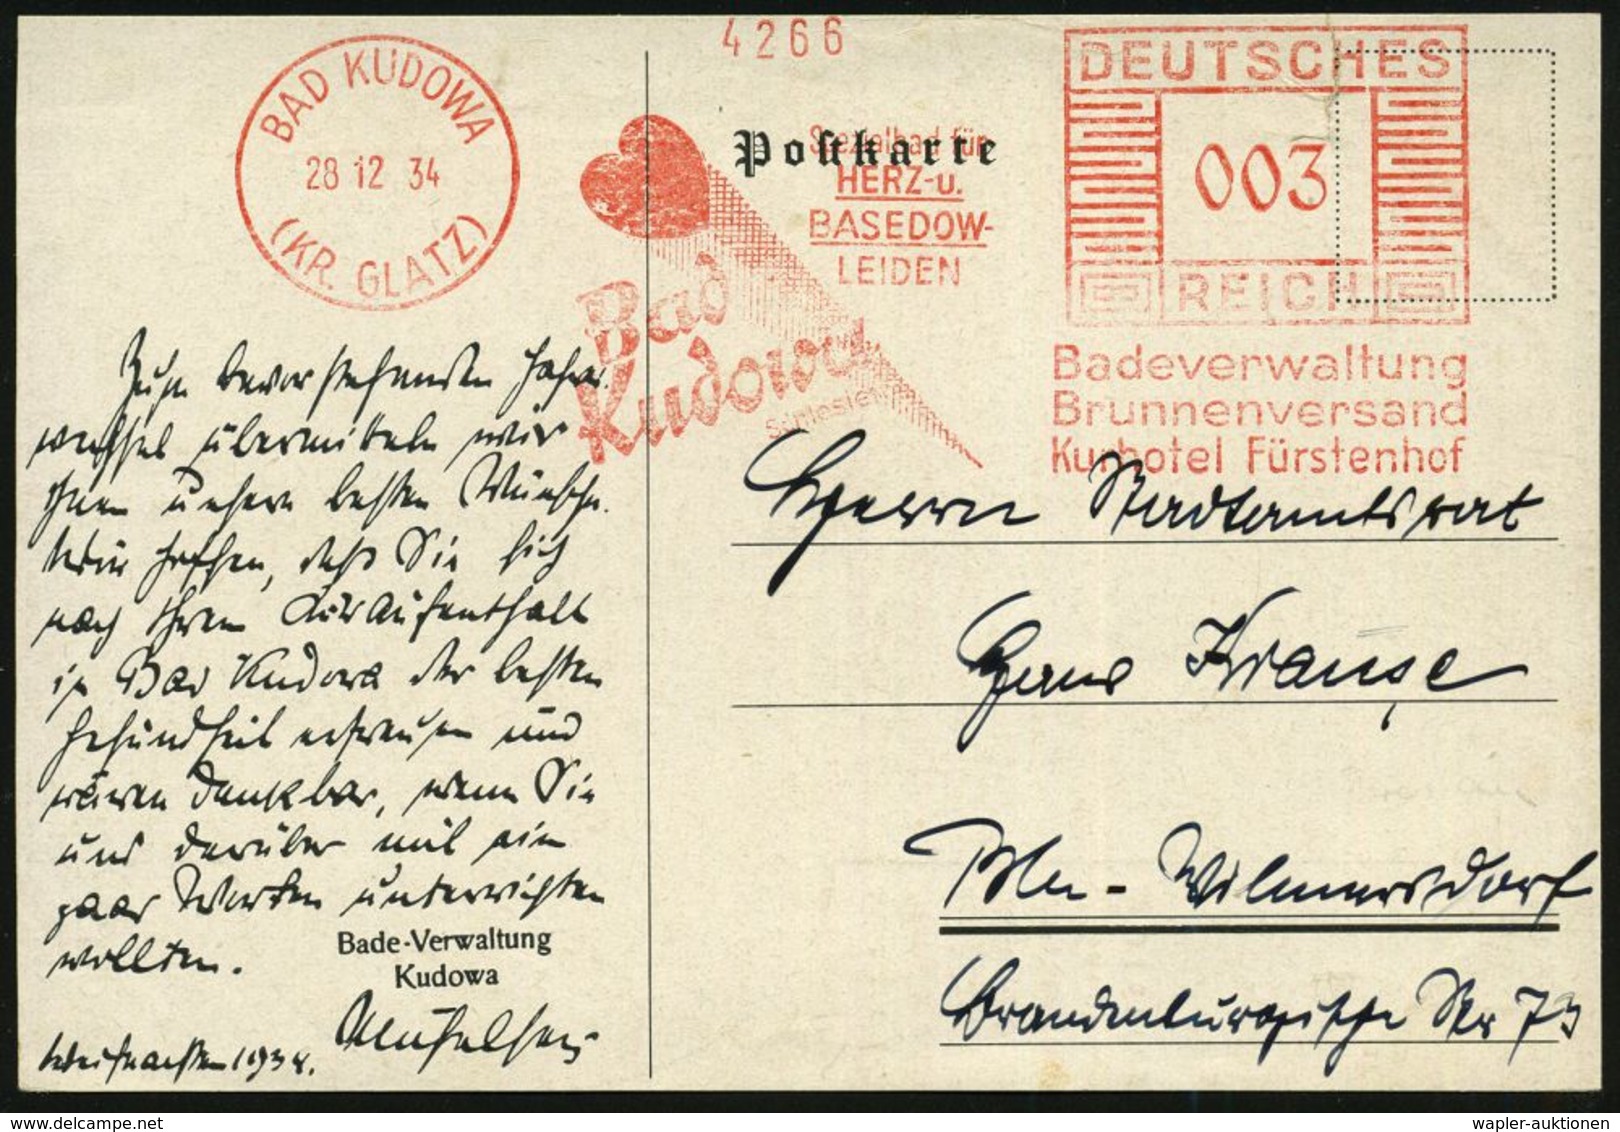 4266
BAD KUDOWA
28 12 34
(KR. GLATZ)
Postkarte
Spezialbad für
HERZ-u.
BASEDOW-
LEIDEN
Bad
Kudowa
Schlesien
DEUTSCHES
003
REICH
Badeverwaltung
Brunnenversand
Kurhotel Fürstenhof
Zum bevorstehenden Jahres-
wechsel übermitteln wir
Ihnen unsere besten Wünsche.
Wir hoffen, daß Sie sich
nach Ihrem Kuraufenthalt
in Bad Kudowa der besten
Gesundheit erfreuen und
wären dankbar, wenn Sie
uns darüber mit ein
paar Worten unterrichten
wollten.
Bade-Verwaltung
Kudowa
Weihnachten 1934.
Herrn Stadtamtsrat
Hans Krause
Bln-Wilmersdorf
Brandenburgische Str 73
wapler-auktionen